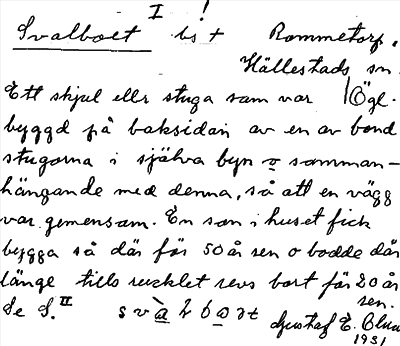 I !
Svalboet bs + Rommetorp,
Hällestads sn.
Ett skjul eller stuga som var Ögl.
byggd på baksidan av en av bond
stugorna i själva byn o samman-
hängande med denna, så att en vägg
var gemensam. En son i huset fick
bygga så där för 50 år sen o bodde där
länge tills rucklet revs bort för 20 år
sen.
Se S. II
Gustaf E.
1931